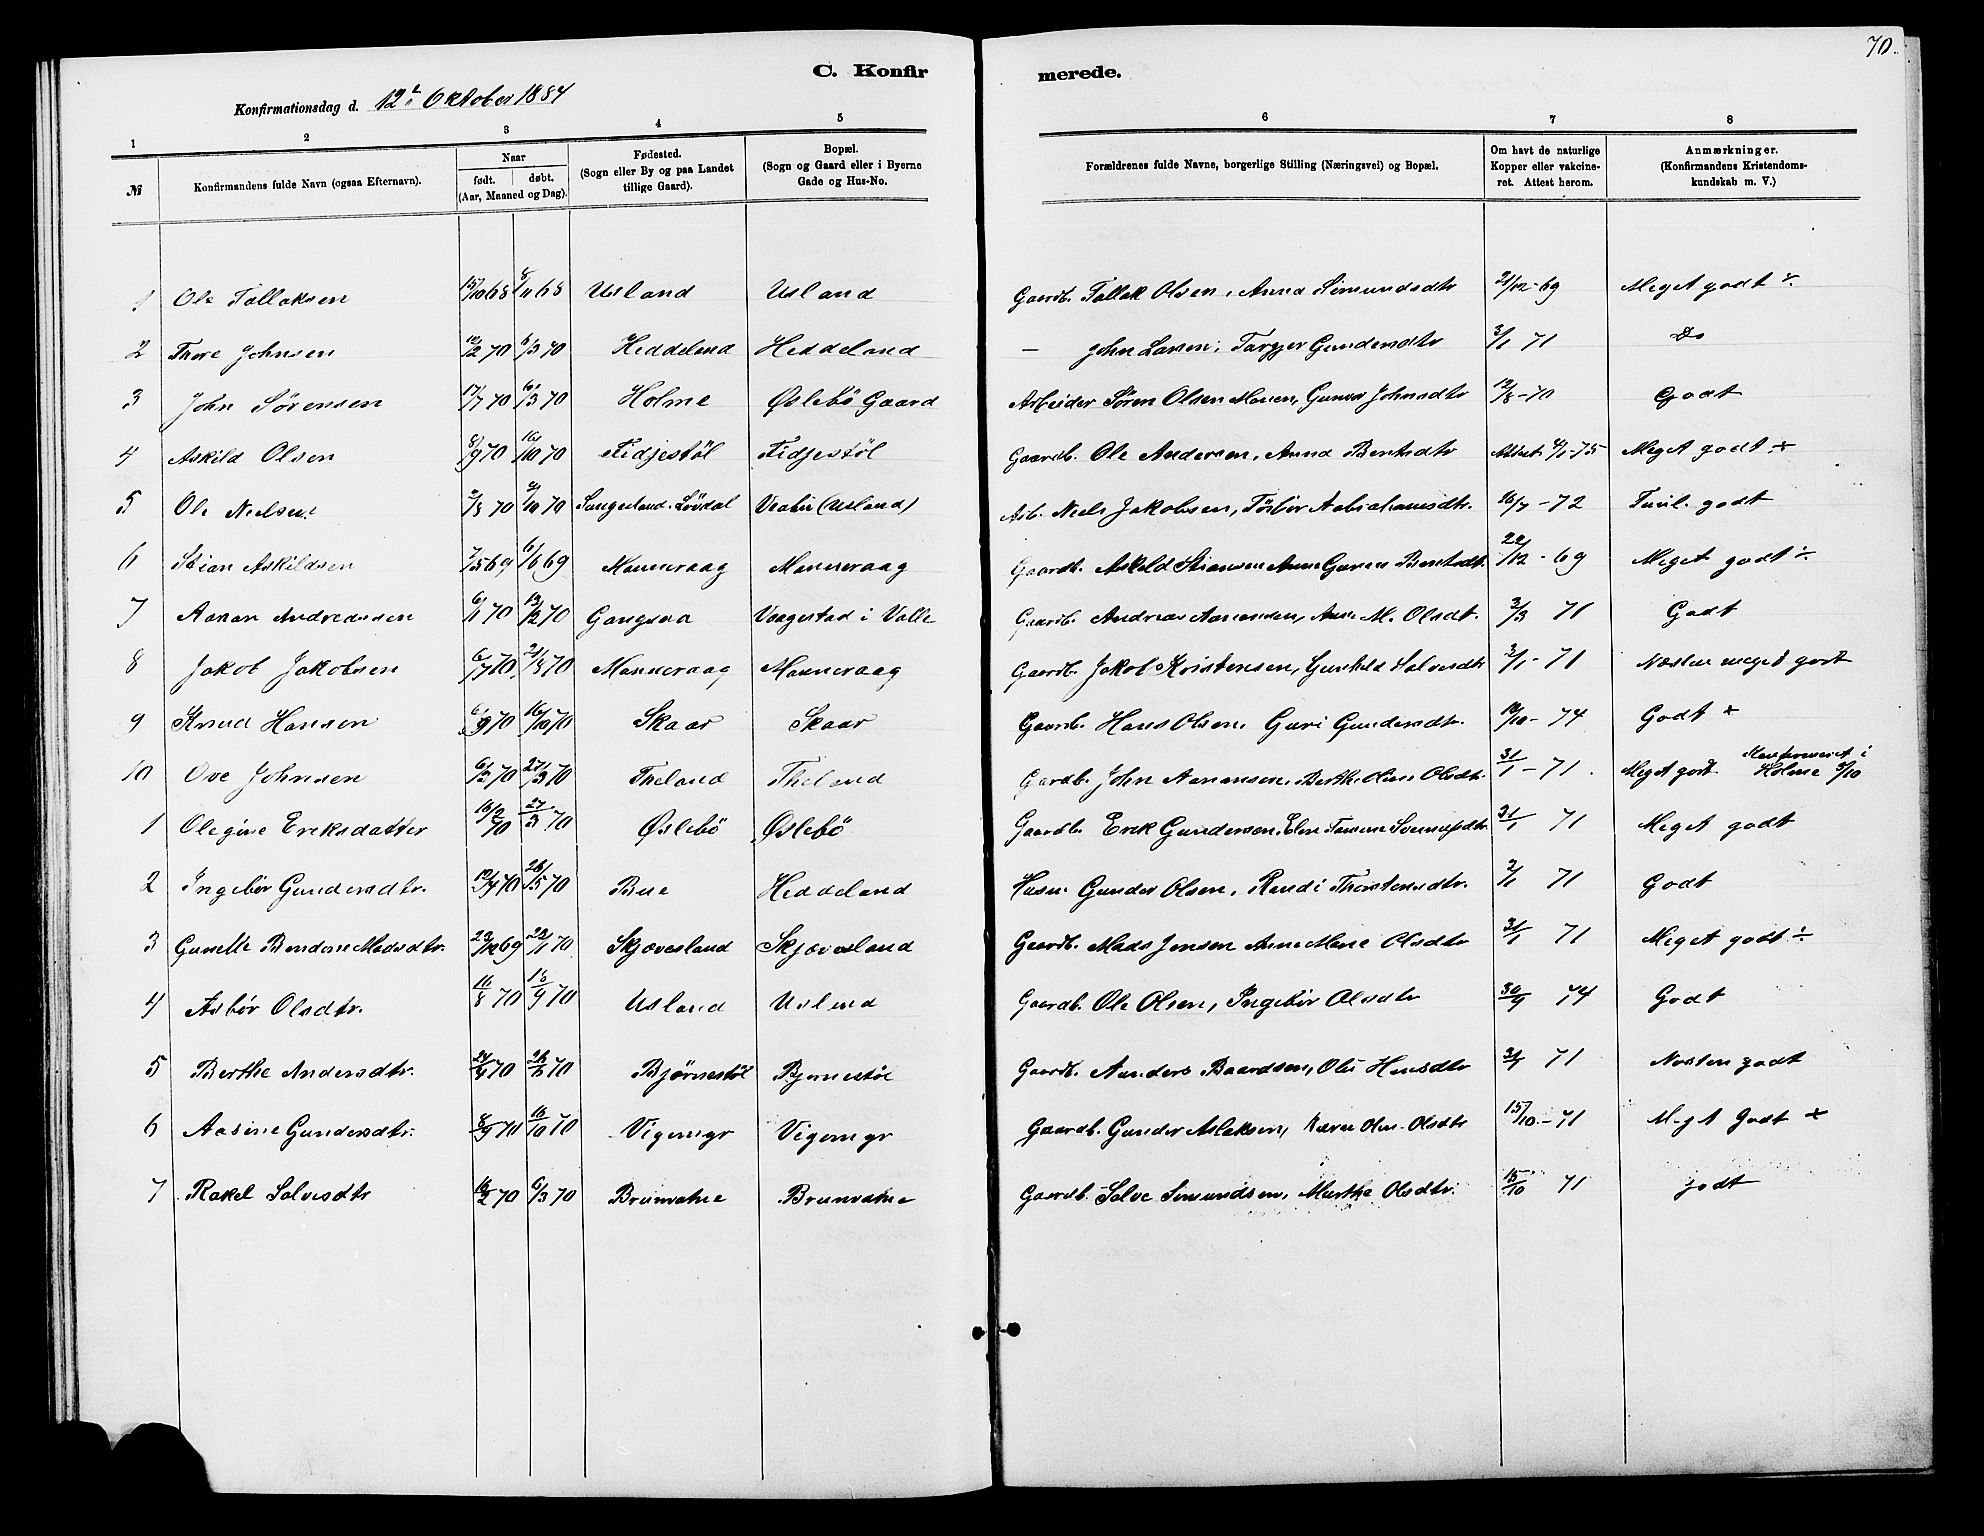 70.
C. Konfirmerede.
Konfirmationsdag d. 12te Oktober 1884
1 2 3 4 5 6 7 8
№ Konfirmandens fulde Navn (ogsaa Efternavn). Naar født. døbt. (Aar, Maaned og Dag). Fødested. (Sogn eller By og paa Landet tillige Gaard). Bopæl. (Sogn og Gaard eller i Byerne Gade og Hus-No. Forældrenes fulde Navne, borgerlige Stilling (Næringsvei) og Bopæl. Om havt de naturlige Kopper eller vakcineret. Attest herom. Anmærkninger. (Konfirmandens Kristendomskundskab m. V.)
1 Ole Tallaksen 15/10 68 8/11 68 Usland Usland Gaardb. Tallak Olsen, Anna Simundsdtr 21/12-69 Meget godt ÷
2 Thore Johnsen 12/2 70 6/3 70 Heddeland Heddeland — John Larsen, Targjer Gundersdtr 3/1 71 Do
3 John Sørensen 17/1 70 6/3 70 Holme Øslebö Gaard Arbeider Søren Olsen, Gunvor Johnsdtr 12/8-70 Godt
4 Askild Olsen 8/9 70 16/10 70 Fidjestöl Fidjestöl Gaardb. Ole Andersen, Anna Berntsdtr Attest 4/1-75 Meget godt ÷
5 Ole Nielsen 70 /10 70 Lövdal (Usland) Arb. Niels Jakobsen, Abrahamsdtr. 26/7-72 Tvil. godt
6 Stian Askildsen 7/5 69 6/6 69 Manneraag Manneraag Gaardb. Askild Stiansen Anne Guren Berntsdt. 22/12-69 Meget godt ÷
7 Aanan Andreassen 6/1 70 13/2 70 Gangsaa Vaagestad i Valle Gaardb. Andreas Aanensen, Anne M. Olsdt. 3/3 71 Godt
8 Jakob Jakobsen 6/7 70 21/8 70 Manneraag Manneraag Gaardb. Jakob Kristensen, Gunhild Salvesdtr 3/1-71 Næsten meget godt
9 Knud Hansen 6/9 70 16/10 70 Skaar Skaar Gaardb. Hans Olsen, Guri Gundersdtr. 12/10-74 Godt +
10 Ove Johnsen 6/2 70 27/3 70 Theland Theland Gardb. John Aanensen, Berthe Oline Olsdtr. 31/1-71. Meget godt. Konfirmeret i Holme 5/10
1 Olegine Eriksdatter 16/2 70 27/3 70 Øslebö Øslebö Gaardb. Erik Gundersen, Elen Tomine Svennugsdtr 31/1 71 Meget godt
2 Ingebör Gundersdtr. 12/4 70 26/5 70 Bue Heddeland Husm. Gunder Olsen, Randi Thorstensdtr. 3/1 71 Godt
3 Gunelle Bendene Madsdtr. 23/12 69 22/1 70 Skjævesland Skjævesland Gaardb. Mads Jensen Anne Marie Olsdtr 31/1 71 Meget godt ÷
4 Asbör Olsdtr. 16/8 70 18/9 70 Usland Usland Gaardb. Ole Olsen, Ingebör Olsdtr 30/9 74 Godt
5 Berthe Andersdtr. 24/4 70 26/5 70 Bjørnestöl Bjørnestöl Gaardb. Aanders Baardsen, Hansdtr 71 Næsten godt
6 Aasine Gundersdtr. 8/9 70 16/10 70 Vigemyr Vigemyr Gaardb. Gunder Aslaksen, Karen Oline Olsdtr 15/10-71 Meget Godt +
7 Rakel Salvesdtr 16/2 70 6/3 70 Brunvatne Brunvatne Gaardb. Salve Simundsen, Marthe Olsdtr. 15/10 71 godt